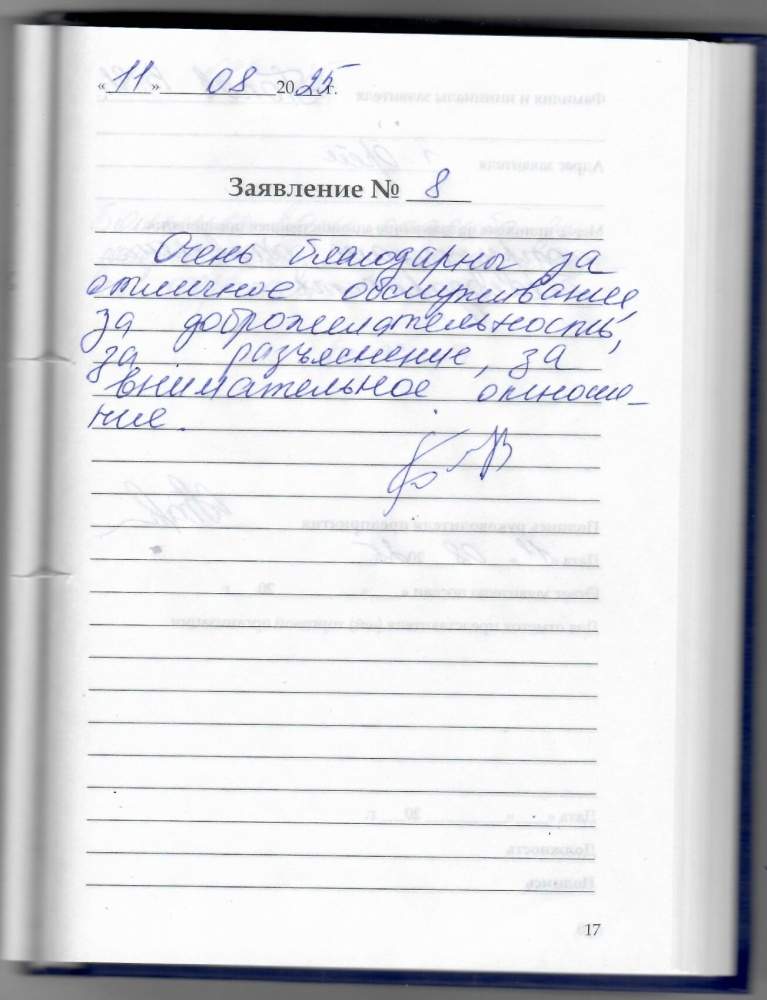 «11» 08 2025 г.
Заявление № 8
Очень благодарны за
отличное обслуживание,
за доброжелательность,
за разъяснение, за
внимательное отноше-
ние.
17